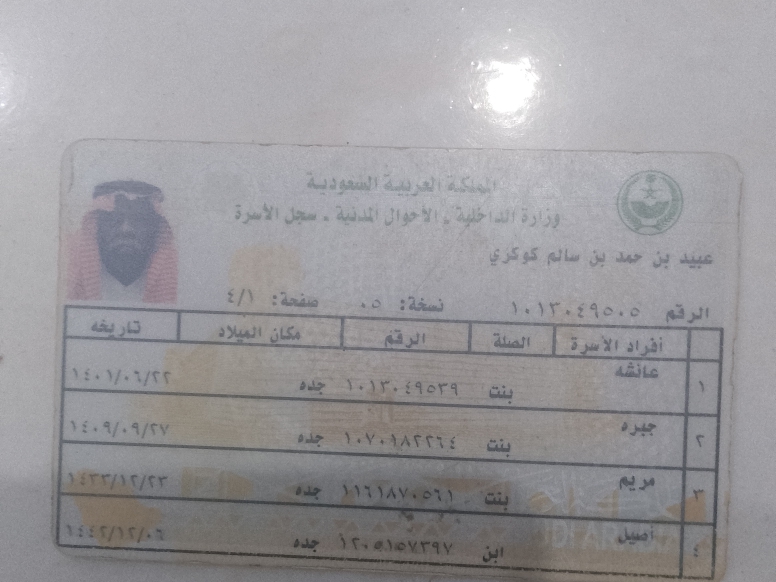 المملكة العربية السعودية
وزارة الداخلية - الأحوال المدنية - سجل الأسرة
عبيد بن حمد بن سالم كوكري
الرقم ١٠١٣٠٤٩٥٠٥ نسخة: ٠٥ صفحة: ٤/١
أفراد الأسرة الصلة الرقم مكان الميلاد تاريخه
١ عائشه بنت ١٠١٣٠٤٩٥٣٩ جده ١٤٠١/٠٦/٢٢
٢ جبره بنت ١٠٧٠١٨٢٢٦٤ جده ١٤٠٩/٠٩/٢٧
٣ مريم بنت ١١٦١٨٧٠٥٦١ جده ١٤٣٣/١٢/٢٣
٤ أصيل ابن ١٢٠٥١٥٧٣٩٧ جده ١٤٤٢/١٢/٠٦